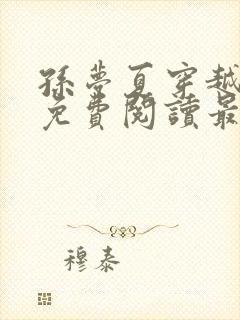 孫夢夏穿越
免費閱讀最
穆泰